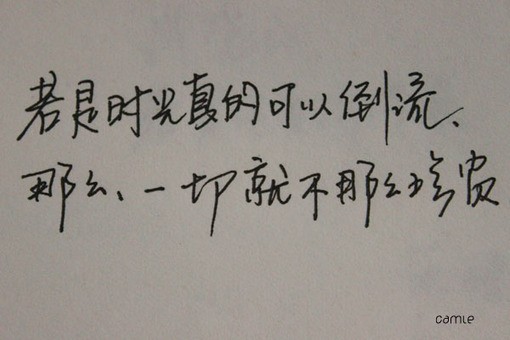 若是时光真的可以倒流、
那么、一切就不那么珍贵
camle